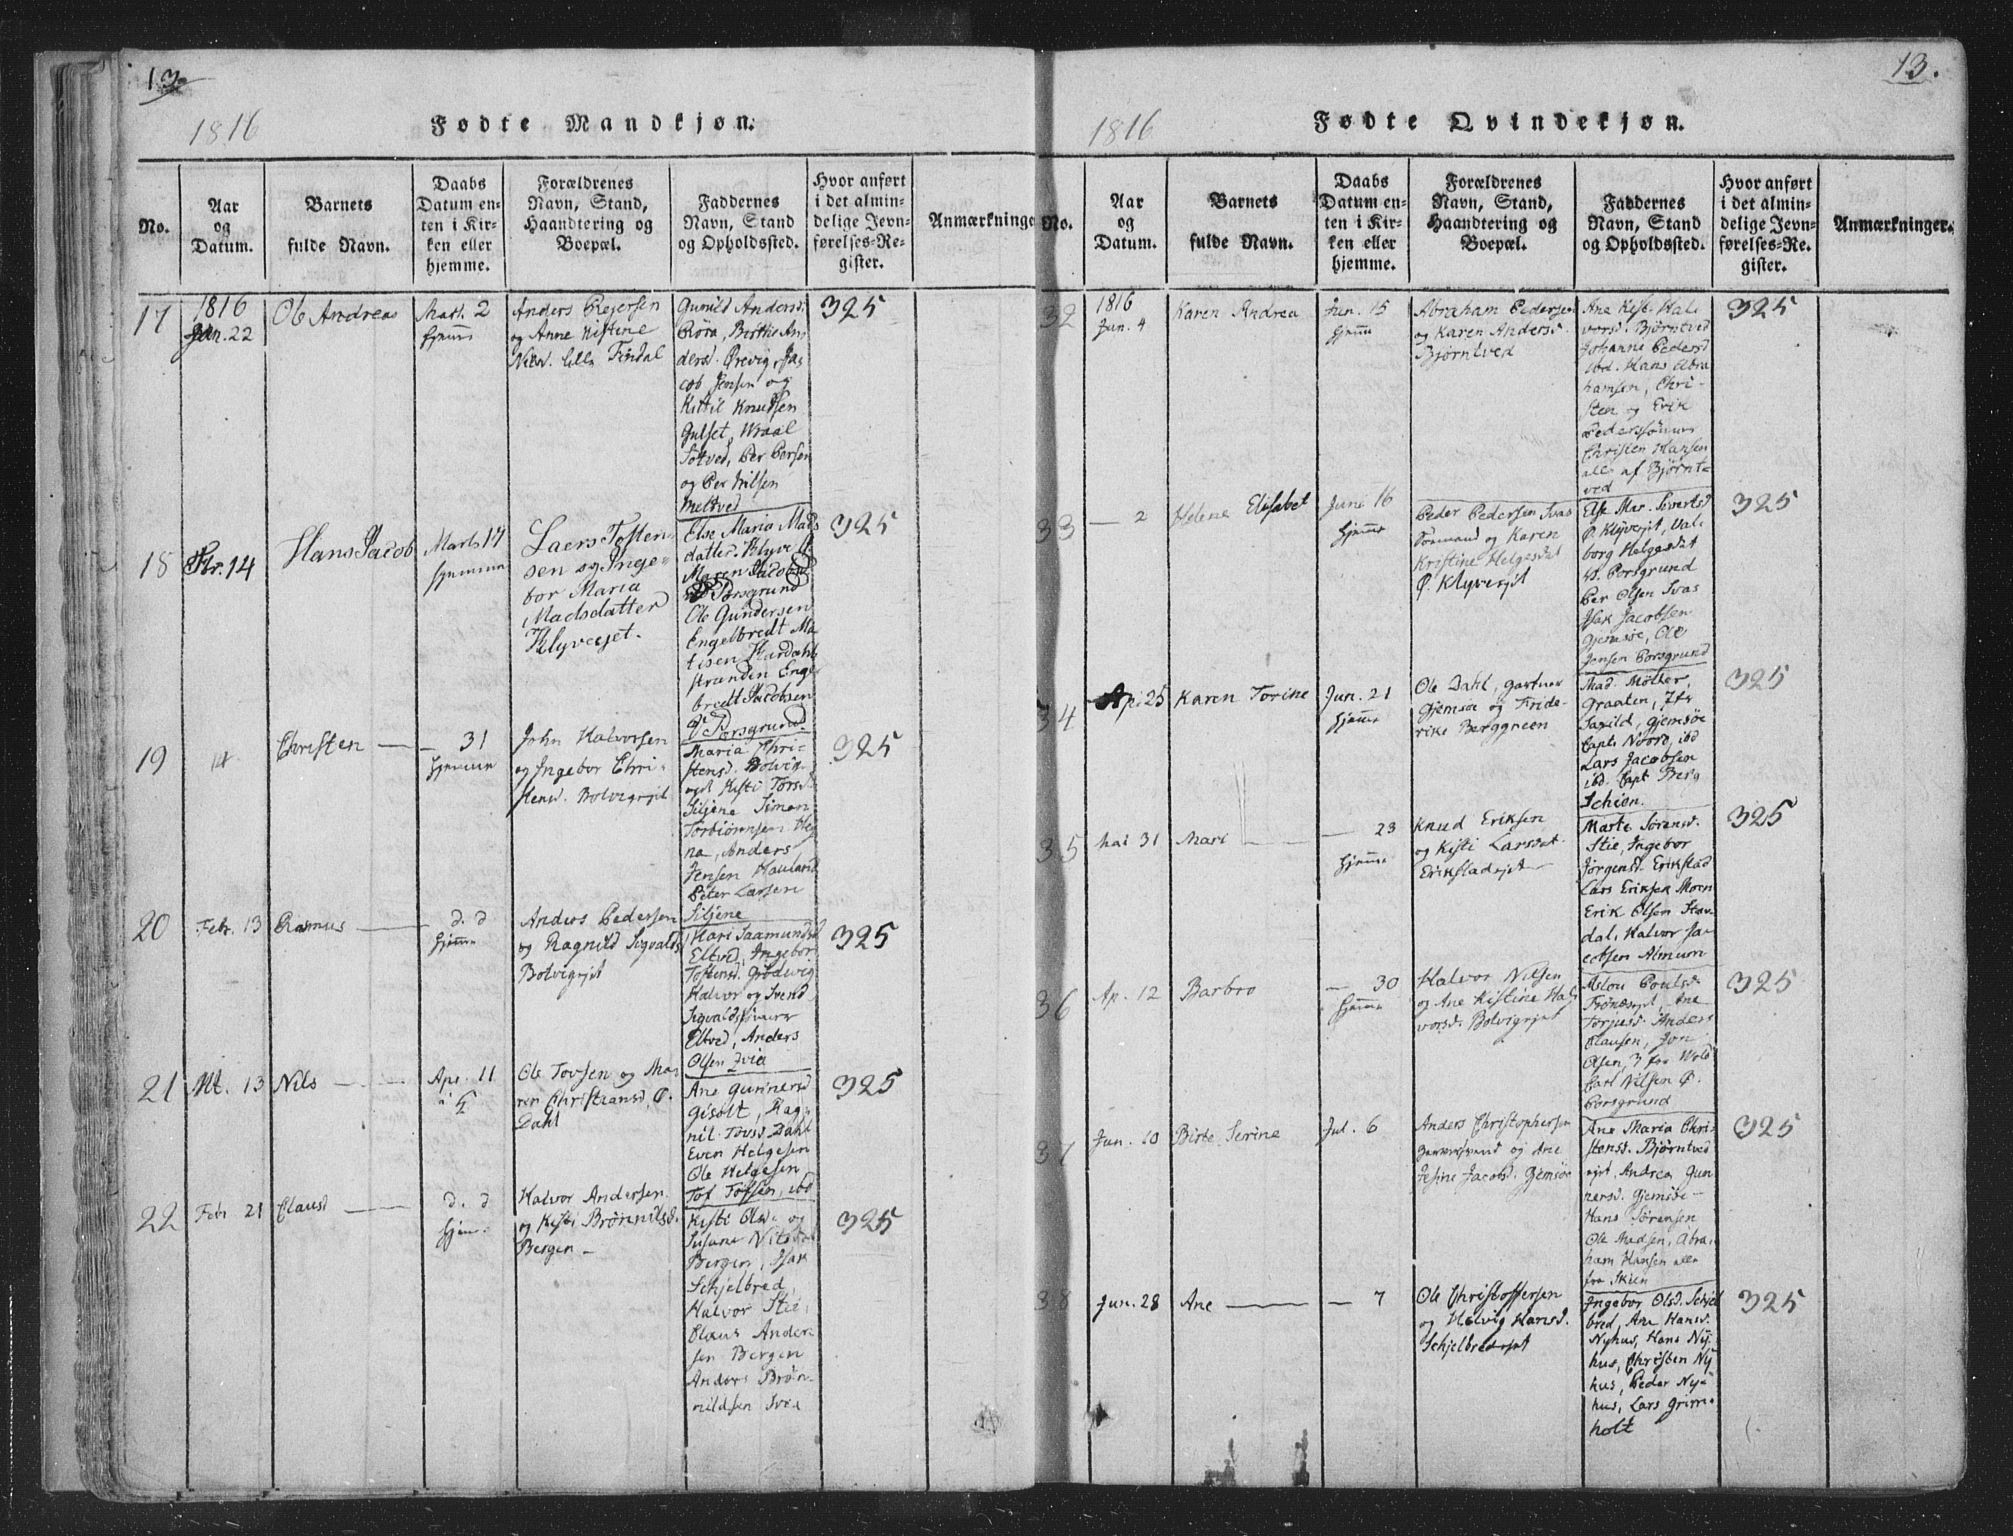 13
1816
Fødte Mandkjøn.
No.
Aar
og
Datum.
Barnets
fulde Navn.
Daabs
Datum en-
ten i Kir-
ken eller
hjemme.
Forældrenes
Navn, Stand,
Haandtering og
Boepæl.
Faddernes
Navn, Stand
og Opholdssted.
Hvor anført
i det almin-
delige Jevn-
førelses-Re-
gister.
Anmærkninge
17
1816
Jan. 22
Ole Andreas
Mart. 2
hjemme
Anders Rejersen
og Anne Kistine
Findal
Gunild Andersd.
Børa, Birthe An
dersd. Ørevig, Ja
cob Jensen og
Kittil Knudsen
Gulset, Wraal
Totved, Per Persen
og Per Nilsen
Meltved
325
18
Fbr. 14
Hans Jacob
Marts 17
hjemme
Laers Tosten
sen og Inge-
bor Maria
Madsdatter
Klyveejet.
Else Maria Mads
datter Klyve
Maren Jacobsd
Porsgrund
Ole Gundersen
Engelbredt Ma
tisen Hardahl
stranden Enge
bredt Jacobsen
V. Porsgrund
325
19
Christen
31
hjemme
John Halvorsen
og Ingebor Chri-
stensd. Bolvigejet
Maria Chri-
stensd. Bolvig-
ejet Kisti Torsd.
Siljene Simon
Torbiørnsen Heg
na, Anders
Jensen Hauland
Peter Larsen
Siljene
325
20
Febr. 13
Rasmus
d. d
hjemme
Anders Pedersen
og Ragnild Sigvalds
Bolvigejet
Mari Saamundsd
Eltved, Ingebor
Tostensd. Grødwig
Halvor og Svend
Sigvaldssønner
Eltved, Anders
Olsen
325
21
Mt. 13
Nils
Apr. 11
Ole Tovsen og Ma
ren Christiansd. Ø.
Dahl
Ane Gunnersd
Gisolt, Rag-
nil Tovsd Dahl
Even Helgesen
Ole Helgesen
Tof Tofsen, ibd
325
22
Febr 21
Claus
d. d
hjem.
Halvor Andersen
og Kisti Brønnilsd.
Bergen -
Kisti Olsd. og
Susane Nilsd
Bergen, Isak
Schjelbred,
Halvor Stie,
Claus Ander
sen Bergen
Anders Brøn-
nildsen
325
13.
1816
Fødte Qvindekjøn.
No.
Aar
og
Datum.
Barnets
fulde Navn.
Daabs
Datum en-
ten i Kir-
ken eller
hjemme.
Forældrenes
Navn, Stand,
Haandtering og
Boepæl.
Faddernes
Navn, Stand
og Opholdssted.
Hvor anført
i det almin-
delige Jevn-
førelses-Re-
gister.
Anmærkninger.
32
1816
Jun. 4
Karen Andrea
Jun. 15
hjemme
Abraham Pedersen
og Karen Andersd.
Bjørntved
Ane Kist. Hal-
vorsd. Bjørntved
Johanne Pedersd
ibd. Hans Abra
hamsen, Chri-
sten og Erik
Pederssønner
Christen Hansen
alle af Bjørnt-
ved
325
33
— 2
Helene Elisabet
Juni 16
hjemme
Peder Pedersen Svas
Sømand og Karen
Kristine Helgesdat
Ø. Klyvejet
Else Mar. Sivertsd
Ø. Klyvejet, Val-
borg Helgesdat
V. Porsgrund
Per Olsen Svas
Isak Jacobsen
Gjemsøe, Ole
Jensen Porsgrund
325
34
Ap. 25
Karen Torine
Jun. 21
hjemme
Ole Dahl, gartner
Gjemsøe og Fride-
rike Berggreen
Mad. Møller,
Graaten, Jfr
Saxild, Gjemsøe
Capt. Noord, ibd
Lars Jacobsen
ibd. Capt Berg
Schien.
325
35
Mai 31
Mari
— 23
hjemme
Knud Eriksen
og Kisti Larsdat
Erikstadejet
Marte Sørensd.
Stie, Ingebor
Jørgensd. Erikstad
Lars Eriksen Moen
Erik Olsen Stav
dal, Halvor Ja-
cobsen Almuen
325
36
Ap. 12
Barbro
— 30
hjemme
Halvor Nilsen
og Ane Kistine Hal
vorsd. Bolvigejet
Aslou Poulsd.
Ane
Torjusd. Anders
Clausen, Jon
Olsen, 3 fra Wold
Carl Nilsen Ø.
Porsgrund
325
37
Jun. 10
Birte Serine
Jul. 6
Anders Christophersen
garversvend og Ane
Jesine Jacobsd. Gjemsøe
Ane Maria Chri-
stensd. Bjørntved
ejet, Andrea Gun
nersd. Gjemsøe -
Hans Sørensen
Ole Madsen, Abra-
ham Hansen alle
fra Skien
325
38
Jun. 28
Ane
— 7
Ole Christoffersen
og Helvig Hansd.
Schjelbredejet
Ingebor Olsd. Schjel
bred, Ane Hansd.
Nyhus, Hans Ny-
hus, Christen Ny
hus, Peder Ny-
hus, Lars Grim-
holt
325